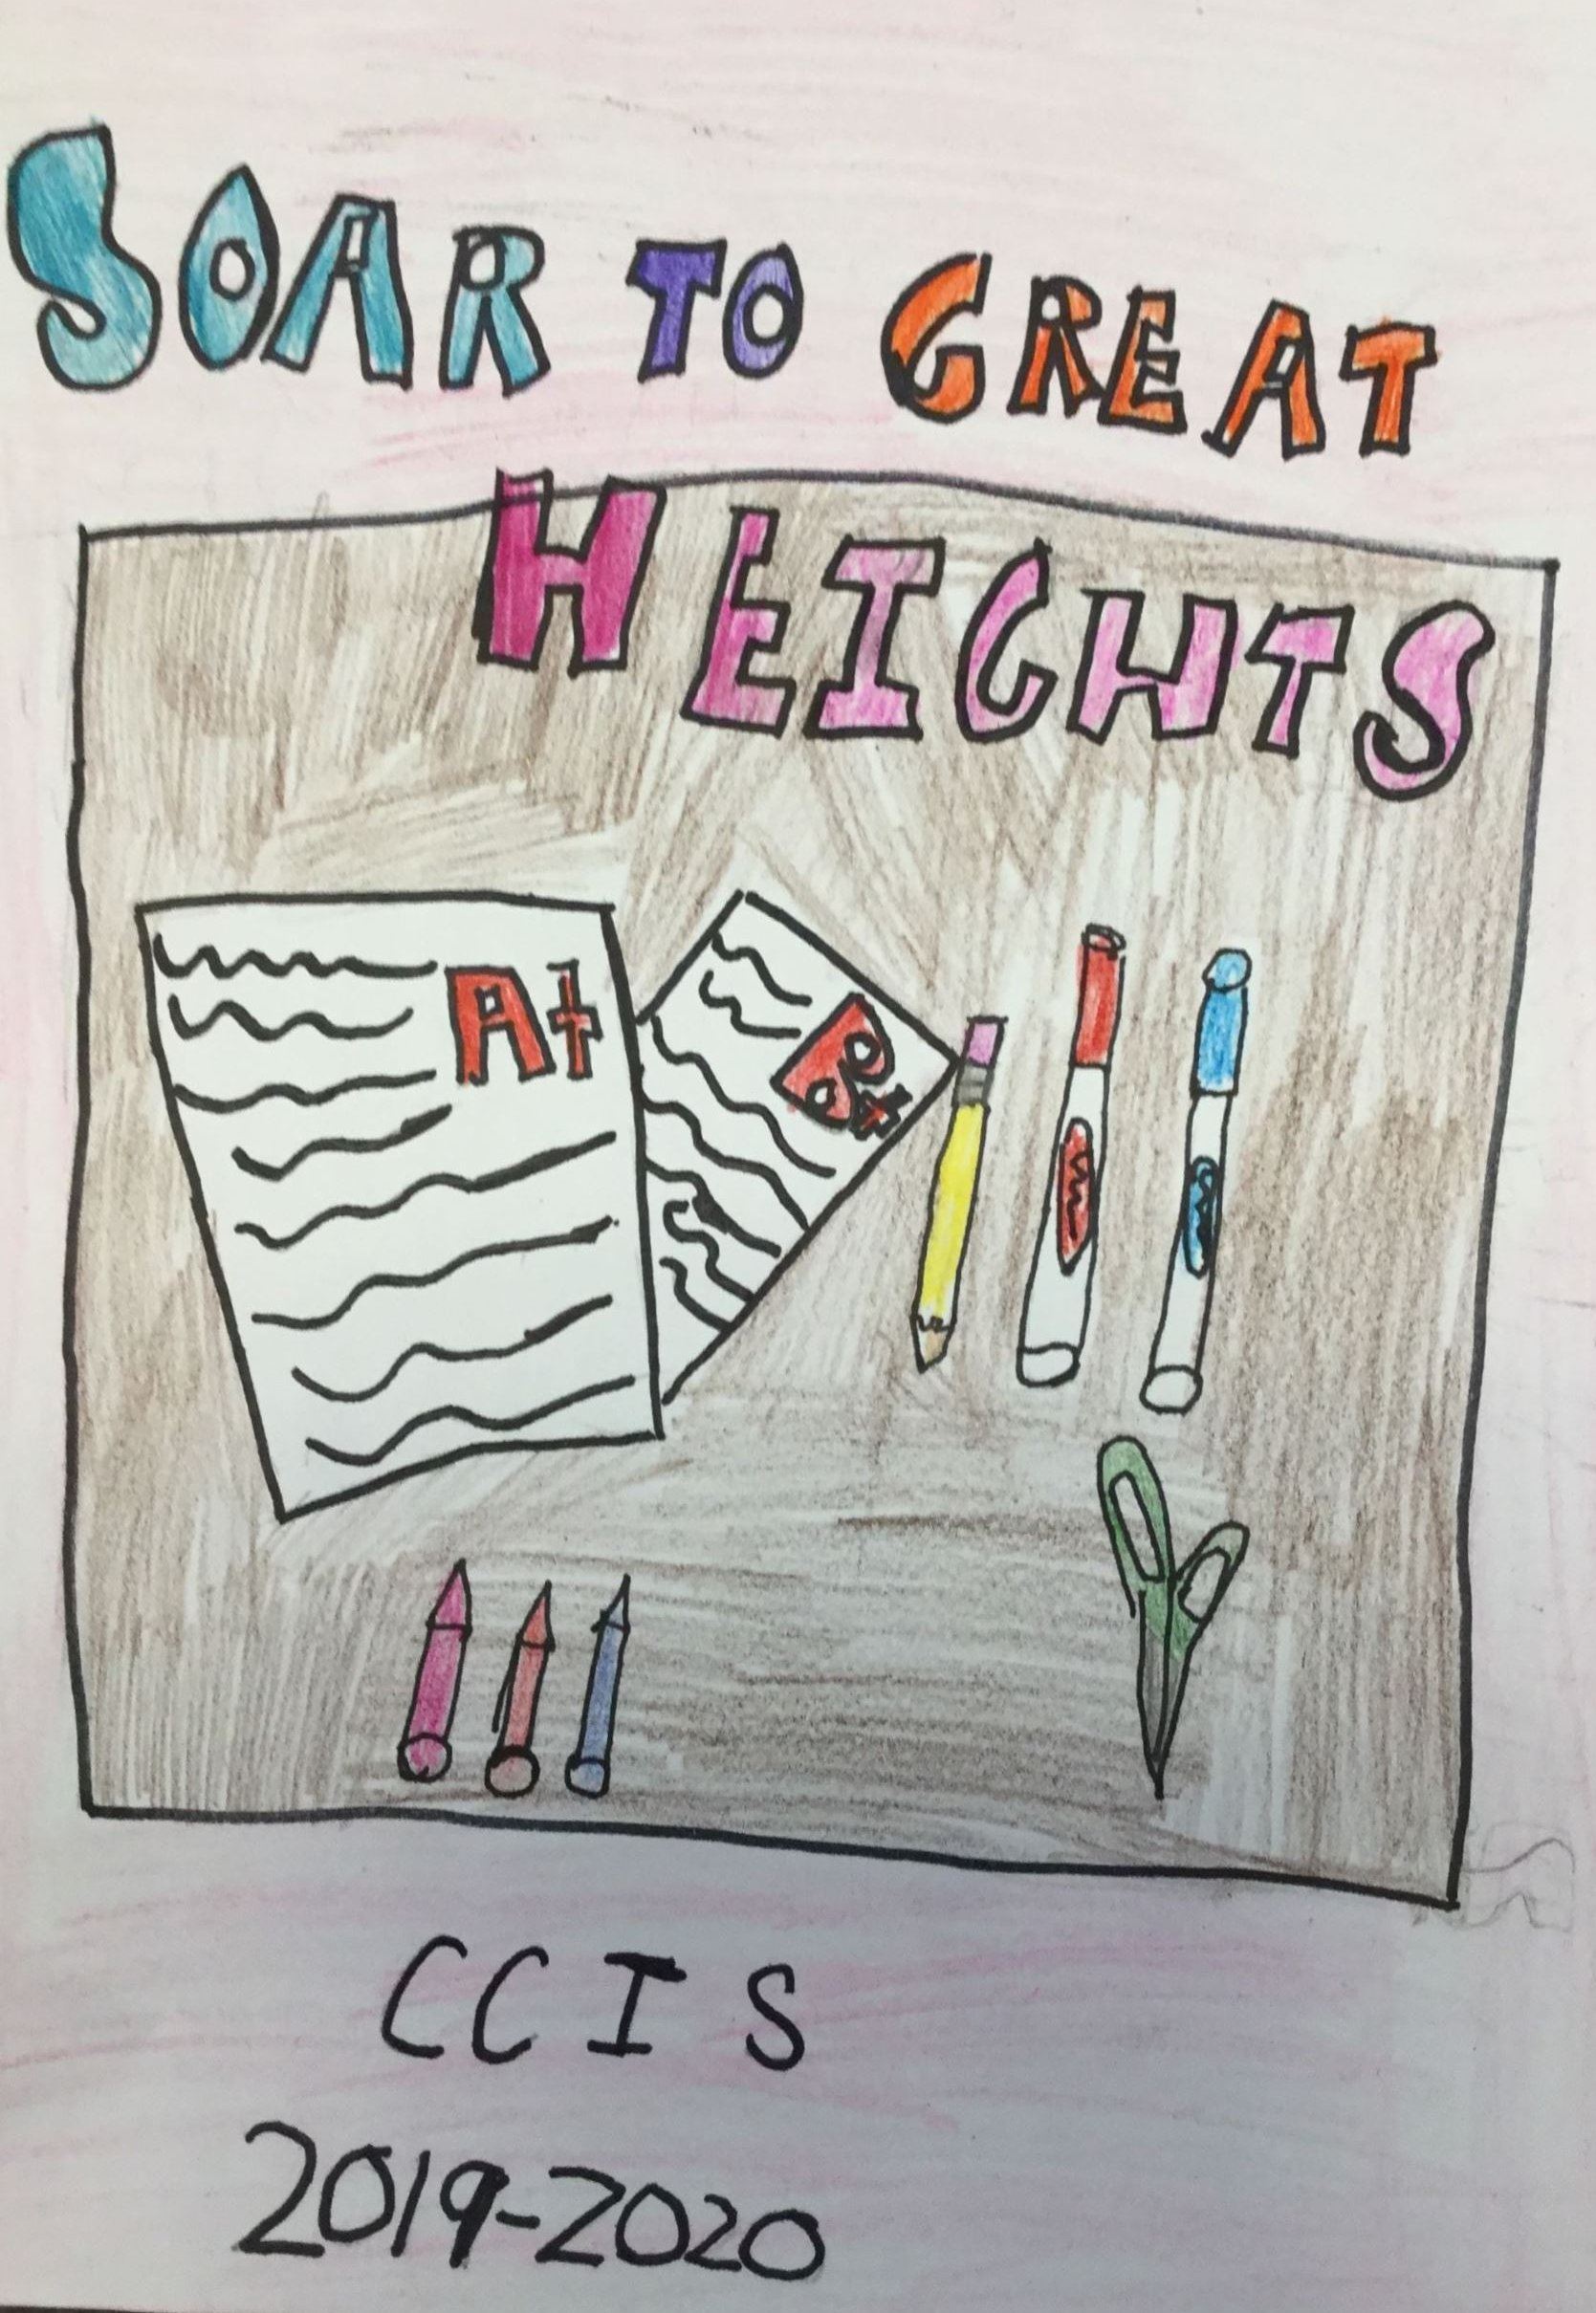 SOAR TO GREAT
HEIGHTS
A+
B+
CCIS
2019-2020